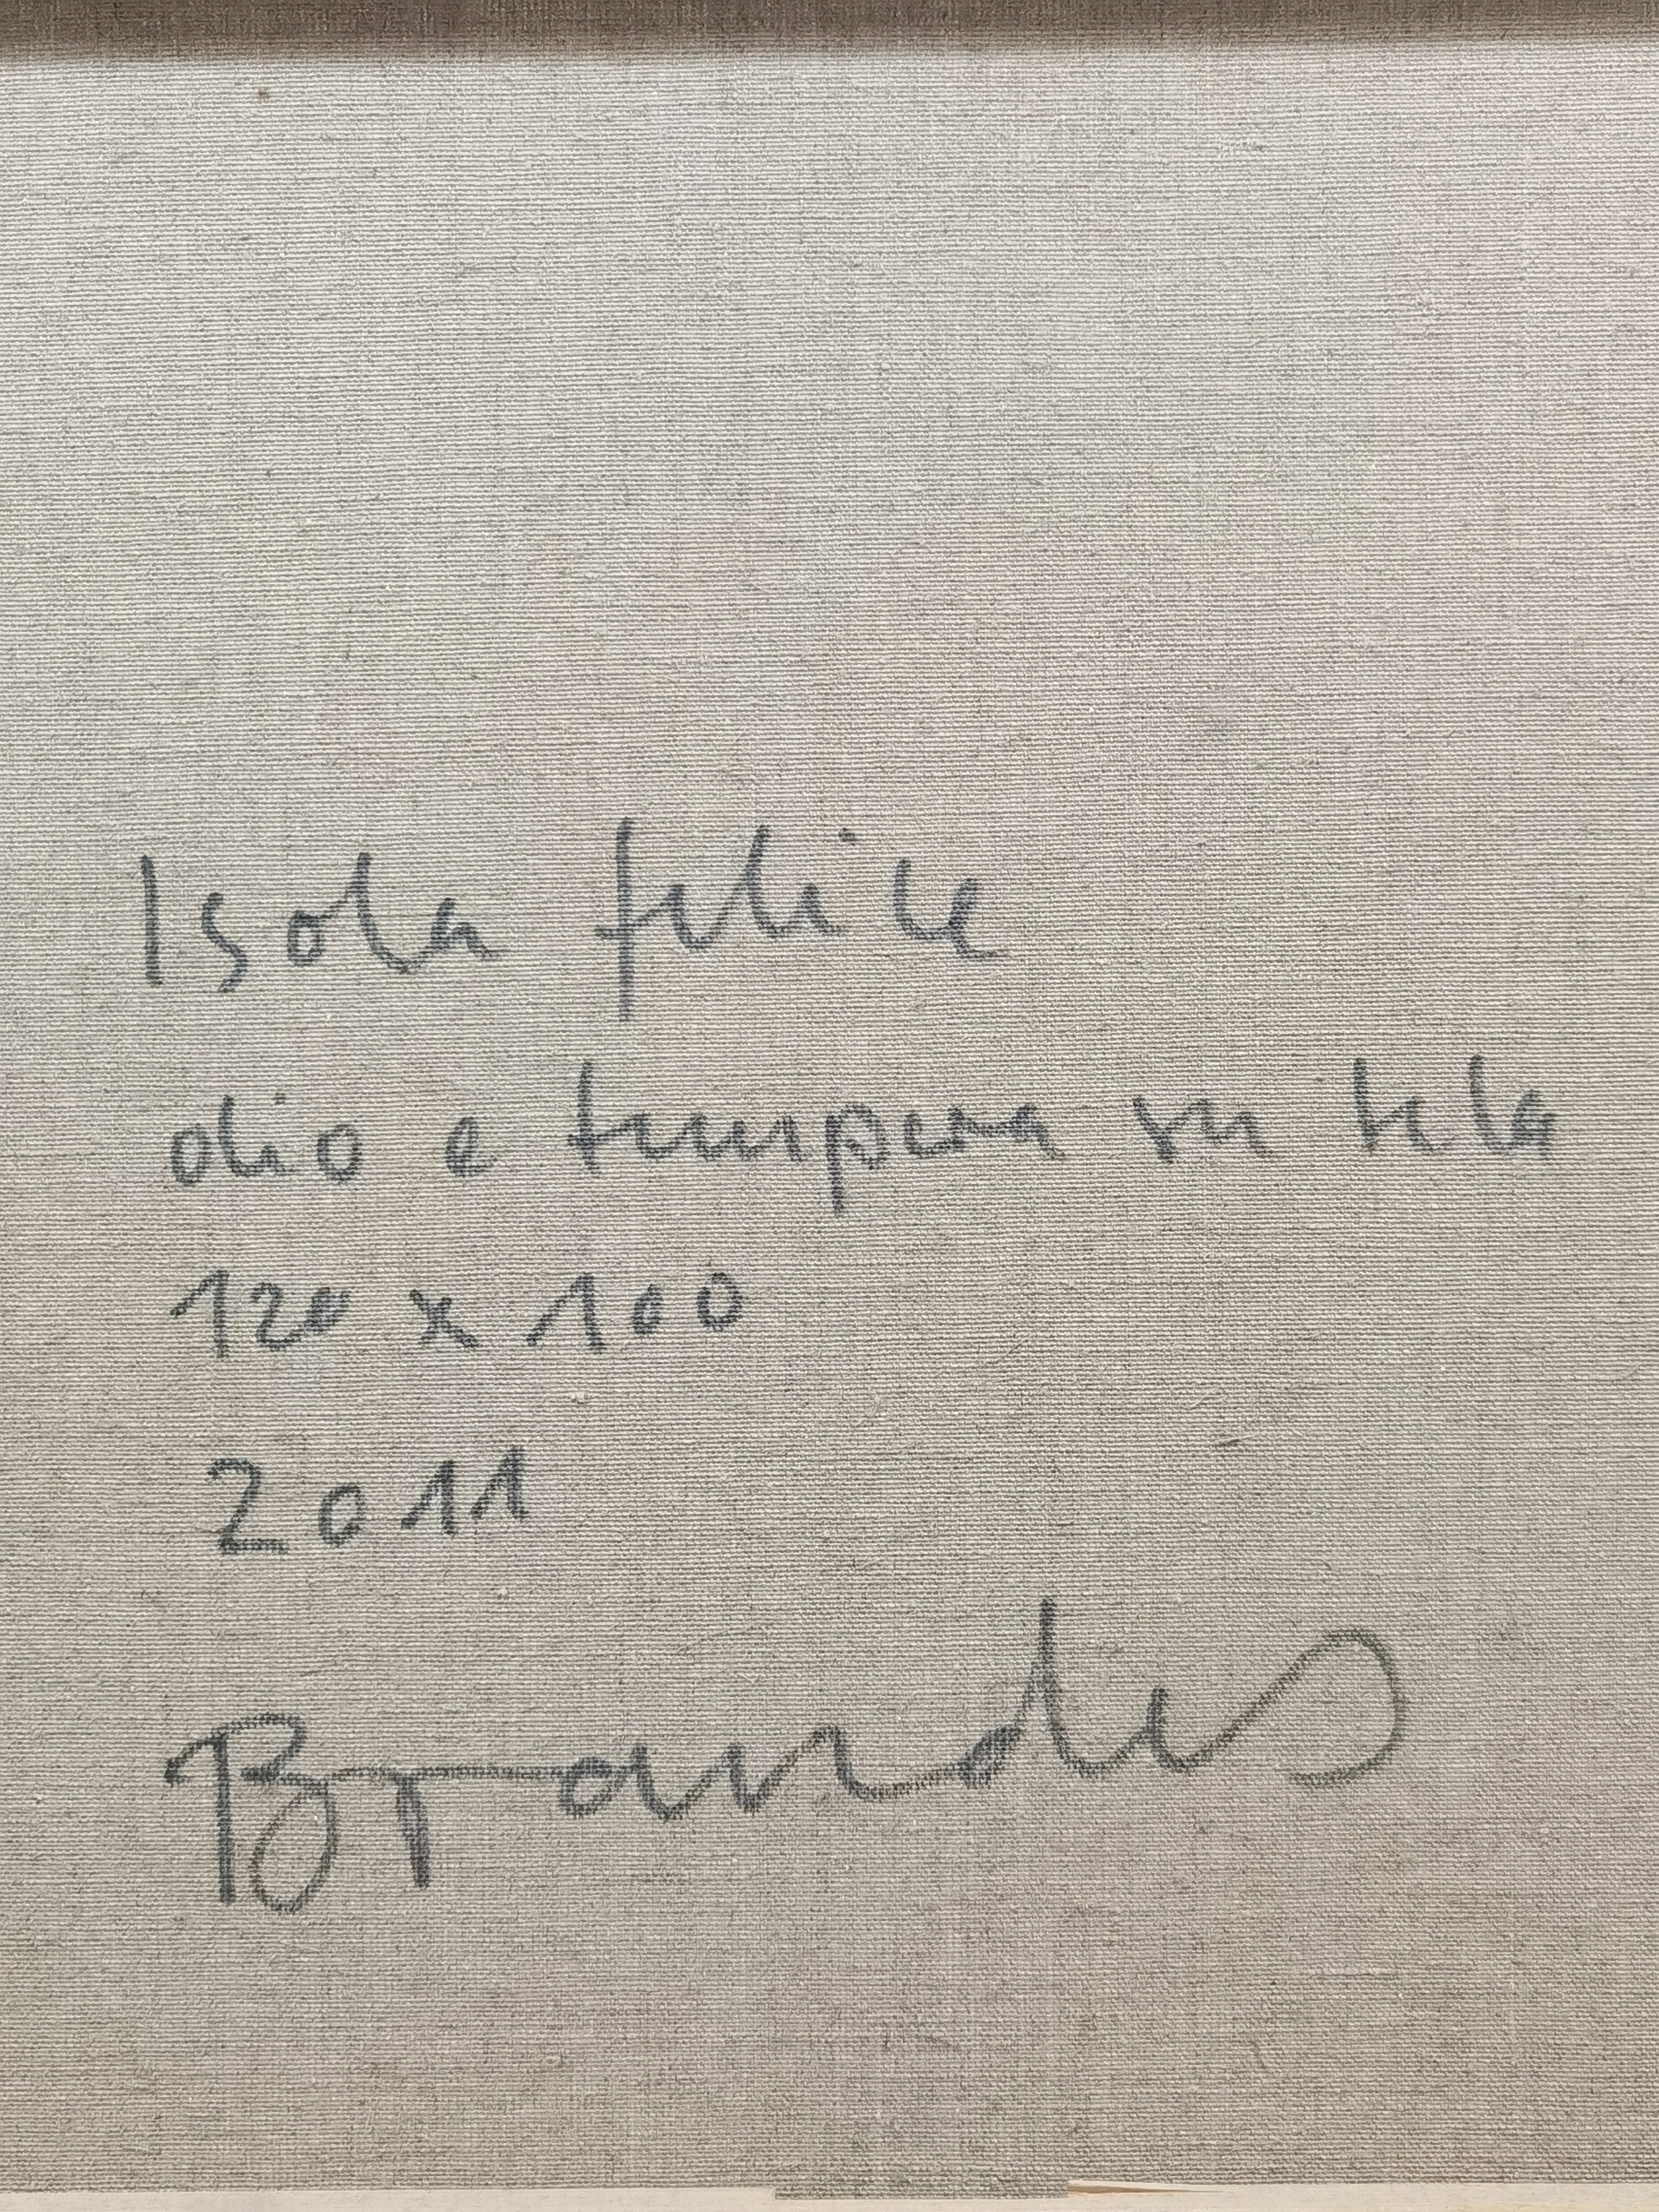 Isola felice
olio e tempera su tela
120 x 100
2011
Brandes